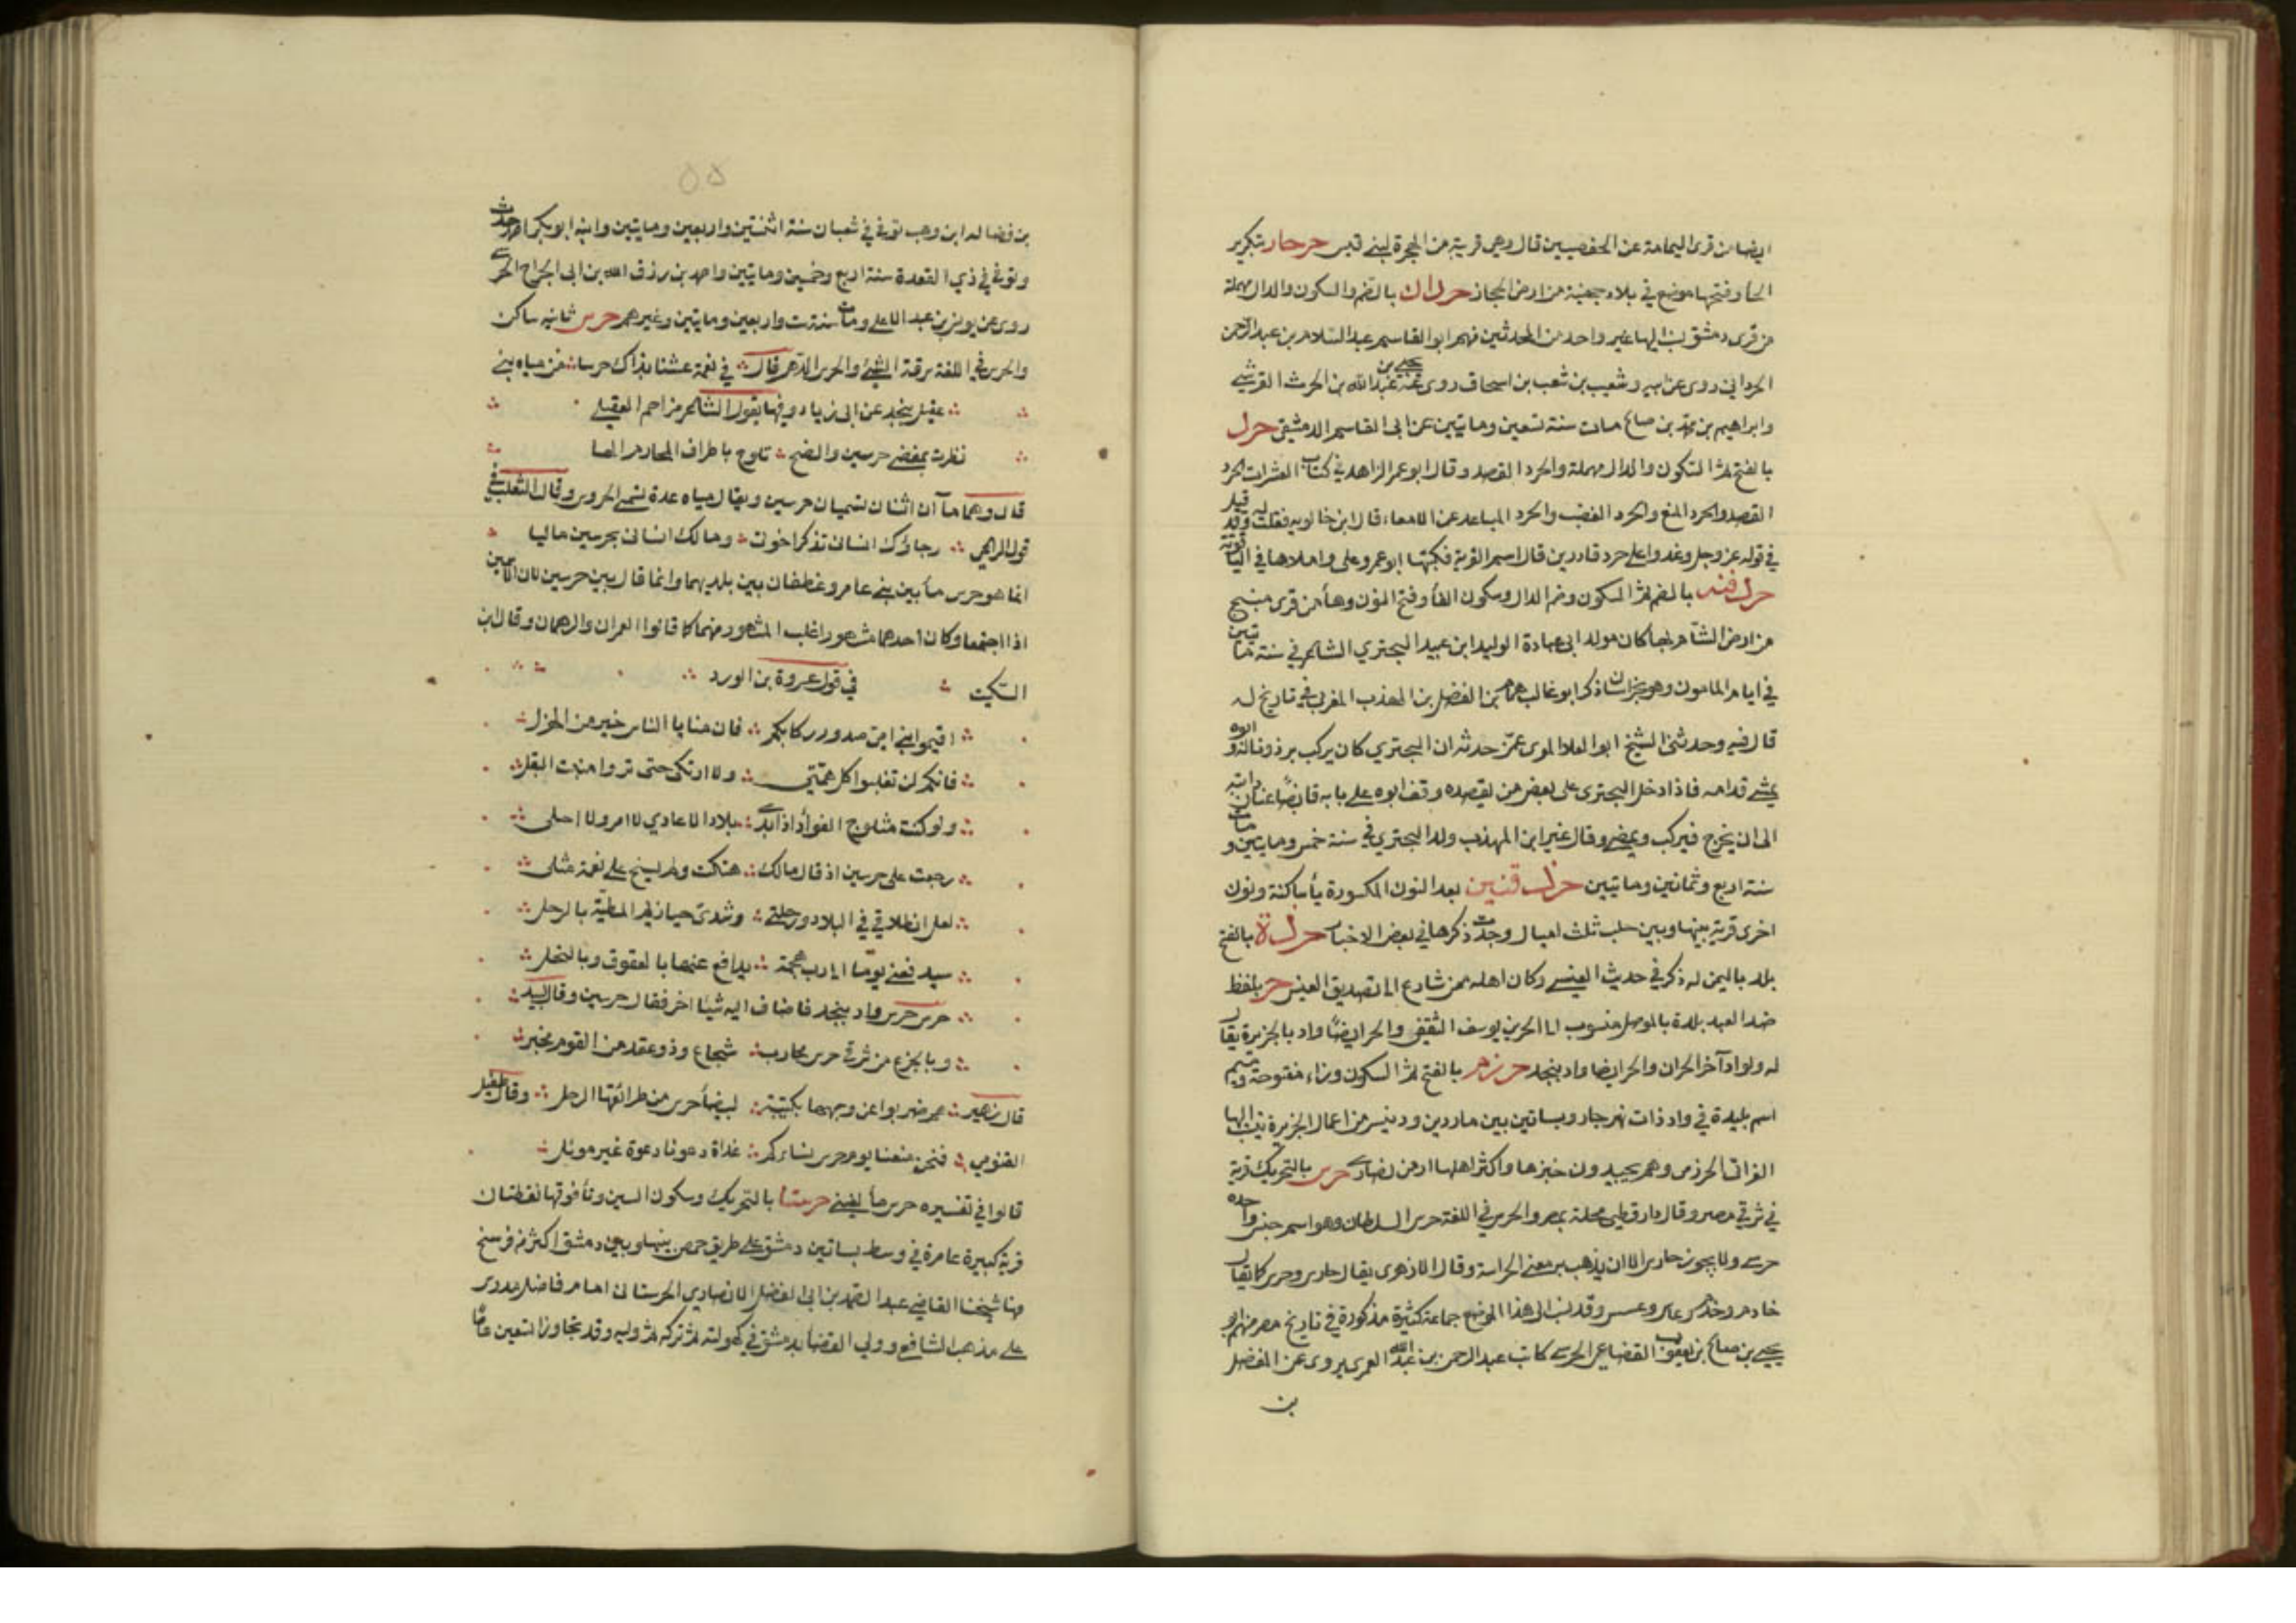 ايضا من قرى اليمامة عن الحفصيين قال وهي قرية من الهجرة لبني قيس حرحار بتكرير
الحا وفتحها موضع في بلاد جهينة من ارض الحجاز حردان بالضم والسكون والدال مهملة
من قرى دمشق نسب اليها غير واحد من المحدثين منهم ابو القاسم عبد السلام بن عبد الرحمن
الحرداني روى عن ابيه وشعيب بن شعيب بن اسحاق روى عنه يحيى بن عبد الله بن الحرث القرشي
وابراهيم بن محمد بن صالح مات سنة تسعين ومايتين عن ابي القاسم الدمشقي حرد
بالفتح ثم السكون والدال مهملة والحرد القصد وقال ابو عمر الزاهد في كتاب العشرات الحرد
القصد والحرد المنع والحرد الغضب والحرد المباعد عن الامعاء قال ابن خالويه فقلت له وقد قيل
في قوله عز وجل وغدوا على حرد قادرين قال اسم القرية فكتبها ابو عمرو على واملاها في الياقوتة
حردفنه بالضم ثم السكون وضم الدال وسكون الفا وفتح النون وهاء من قرى منبج
من ارض الشام بها كان مولد ابي عبادة الوليد ابن عبيد البحتري الشاعر في سنة مايتين
في ايام المامون وهو بخراسان ذكر ابو غالب همام بن الفضل بن المهذب المغربي في تاريخ له
قال فيه وحدثني الشيخ ابو العلا الموى عمن حدثه ان البحتري كان يركب برذونا له وابوه
يمشي قدامه فاذا دخل البحتري على بعض من يقصده وقف ابوه على بابه قابضا عنان دابته
الى ان يخرج فيركب ويمضي وقال غير ابن المهذب ولد البحتري في سنة خمس ومايتين ومات
سنة اربع وثمانين ومايتين حردفنين بعد النون المكسورة يأ ساكنة ونون
اخرى قرية بينها وبين حلب ثلث اميال وجدت ذكرها في بعض الاخبار حردة بالفتح
بلد باليمن له ذكر في حديث العنسي وكان اهله ممن سارع الى تصديق العنسي حر بلفظ
ضد العبد بلدة بالموصل منسوب الى الحر بن يوسف الثقفي والحر ايضا واد بالجزيرة يقال
له ولواد آخر الحران والحر ايضا واد بنجد حرزم بالفتح ثم السكون وزاء مفتوحة وميم
اسم بليدة في واد ذات نهر جار وبساتين بين ماردين ودنيسر من اعمال الجزيرة ينسب اليها
الفرات الحرزمي وهم يجيدون خبزها واكثر اهلها ارمن نصارى حرس بالتحريك قرية
في شرقي مصر وقال دارقطي محلة بمصر والحرس في اللغة حرس السلطان وهو اسم جنس واحده
حرسي ولا يجوز حارس الا ان يذهب به معنى الحراسة وقال الازهري يقال حارس وحرس كما يقال
خادم وخدم وعاس وعسس وقد نسب الى هذا الموضع جماعة كثيرة مذكورة في تاريخ مصر منهم ابو
يحيى بن صالح بن يعقوب القضاعي الحرسي كاتب عبد الرحمن بن عبد الله العمري يروى عن المفضل
بن
٥٥
بن فضالة ابن وهب توفي في شعبان سنة اثنتين واربعين ومايتين وابنه ابو بكر احمد حدث
وتوفي في ذي القعدة سنة اربع وخمسين ومايتين واحمد بن رزق الله بن ابي الجراح الحرسي
روى عن يونس بن عبد الاعلى ومات سنة ست واربعين ومايتين وغيرهم حرس ثانيه ساكن
والحرس في اللغة سرقة الشيء والحرس الدهر قال في نعمة عشنا بذاك حرسا من مياه بني
عقيل بنجد عن ابي زياد وفيها يقول الشاعر مزاحم العقيلي
نظرت بمفضى حرسين والضح تلوح باطراف المخارم الصا
قال وهما مآآن اثنان تسميان حرسين ويقال مياه عدة تسمى الحروس وقال الثعلب في
قول الراعي رجاؤك انسان تذكر اخوت ومالك انسانى بحرسين ماليا
انما هو حرس مأ بين بني عامر وغطفان بين بلديهما وانما قال بين حرسين لان الاسمين
اذا اجتمعا وكان احدهما مشهورا غلب المشهور منهما كما قالوا العمران والرهمان وقال ابن
السكيت في قول عروة بن الورد
اقيموا بني امي صدور ركابكم فان منايا الناس خير من الهزل
فانكم لن تغلبوا كل همتي ولا ارتكي حتى تروا منبت البقل
ولو كنت مثلوج الفواد اذا بدت بلاد الاعادي لا امر ولا احلى
رجعت على حرسين اذ قال مالك هلكت وهل يلحى على نعمة مثلى
لعل انطلاقي في البلاد ورحلتي وشدي حيازيم المطية بالرحل
سيدفعني يوما الى رب هجمة يدافع عنها بالعقوق وبالنخل
حرس حرس واد بنجد فاضاف اليه شيئا اخر فقال حرسين وقال لبيد
وبالجزع من شرقي حرس محارب شجاع وذو عقد من القوم محبر
قال زهير هم ضربوا عن وجهها بكتيبة لبيضأ حرس من طرائقها الرجل وقال طفيل
الغنومي فنحن منعنا يوم حرس نسائكم غداة دعونا دعوة غير موئل
قالوا في تفسيره حرس مأ لغني حرستا بالتحريك وسكون السين وتأ فوقها نقطتان
قرية كبيرة عامرة في وسط بساتين دمشق على طريق حمص بينها وبين دمشق اكثر من فرسخ
منها شيخنا القاضي عبد الصمد بن ابي الفضل الانصاري الحرستاني امام فاضل مدرس
على مذهب الشافعي وولي القضا بدمشق في كهولته ثم تركه ثم وليه وقد تجاوز التسعين عاما